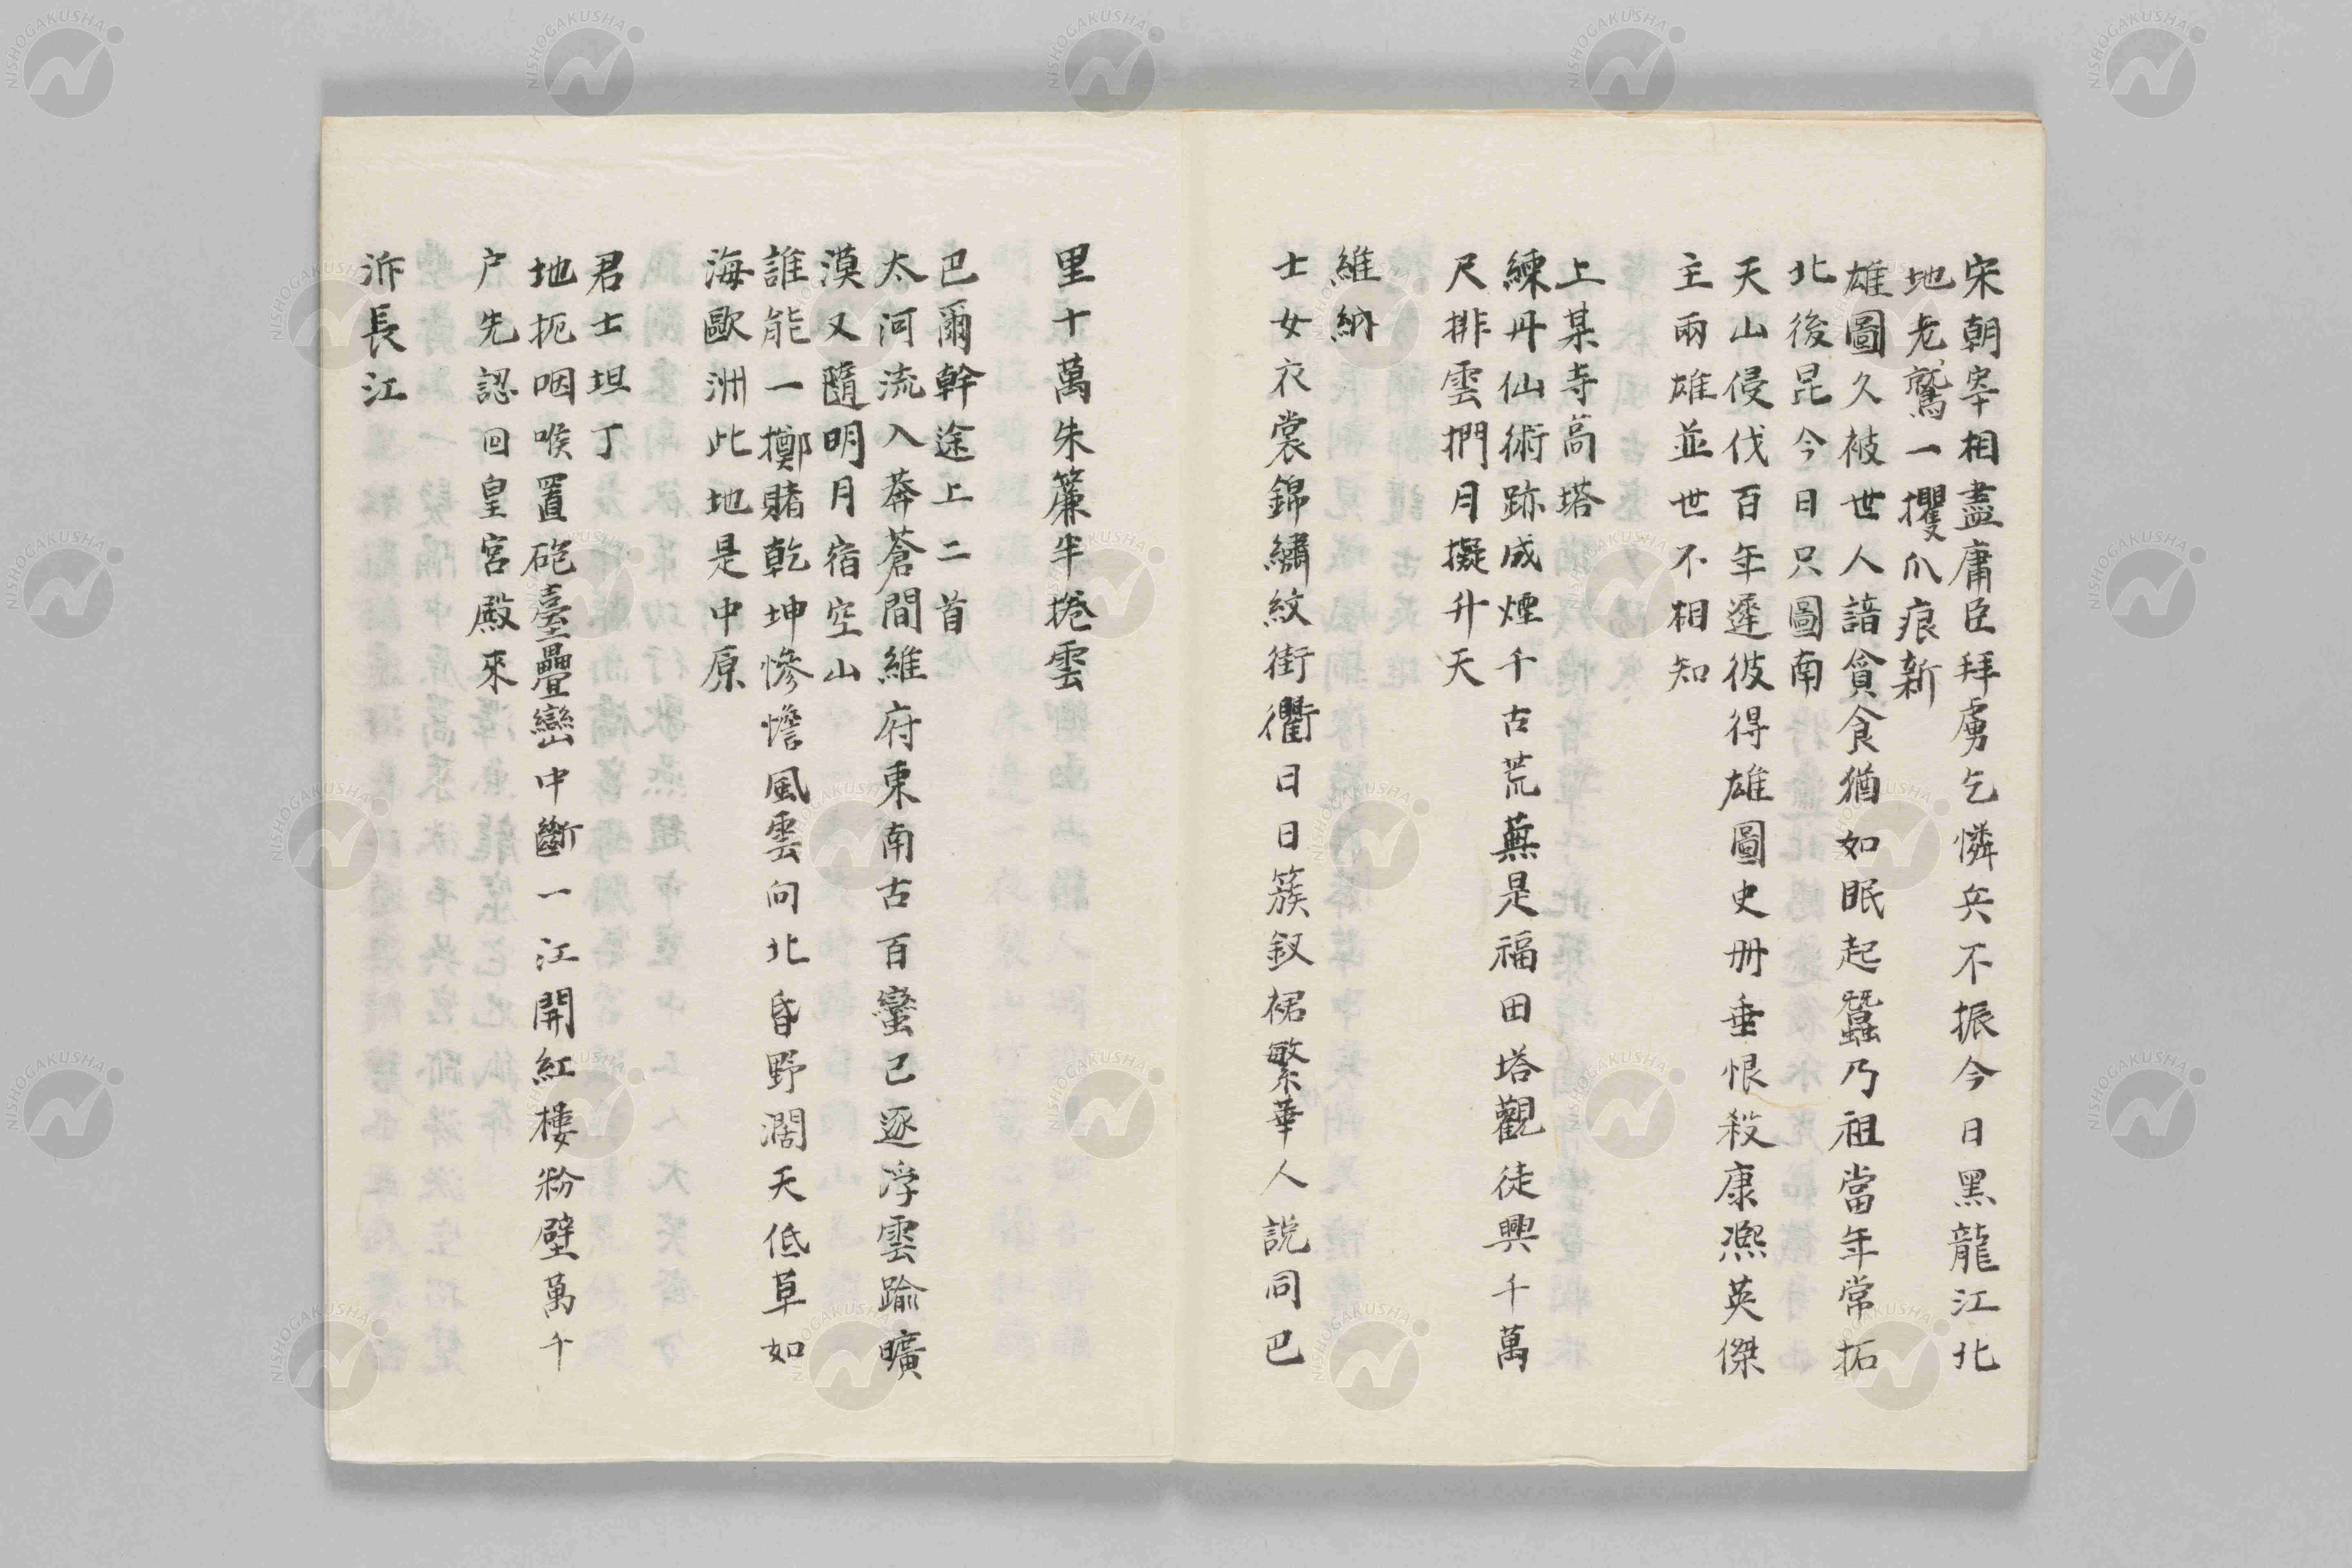 宋朝宰相盡庸臣拜虜乞憐兵不振今日黑龍江北
地老鷲一攫爪痕新
雄圖久被世人諳貪食猶如眠起蠶乃祖當年常拓
北後昆今日只圖南
天山侵伐百年遲彼得雄圖史册垂恨殺康凞英傑
主兩雄並世不相知
上某寺高塔
練丹仙術跡成煙千古荒蕪是福田塔觀徒興千萬
尺排雲捫月擬升天
維納
士女衣裳錦繡紋街衢日日簇釵裙繁華人説同巴
里十萬朱簾半捲雲
巴爾幹途上二首
太河流入莽蒼間維府東南古百蠻已逐浮雲踰曠
漠又隨明月宿空山
誰能一擲賭乾坤慘憺風雲向北昏野濶天低草如
海歐洲此地是中原
君士坦丁
地扼咽喉置砲臺疊巒中斷一江開紅樓粉壁萬千
户先認回皇宮殿來
泝長江
NISHOGAKUSHA